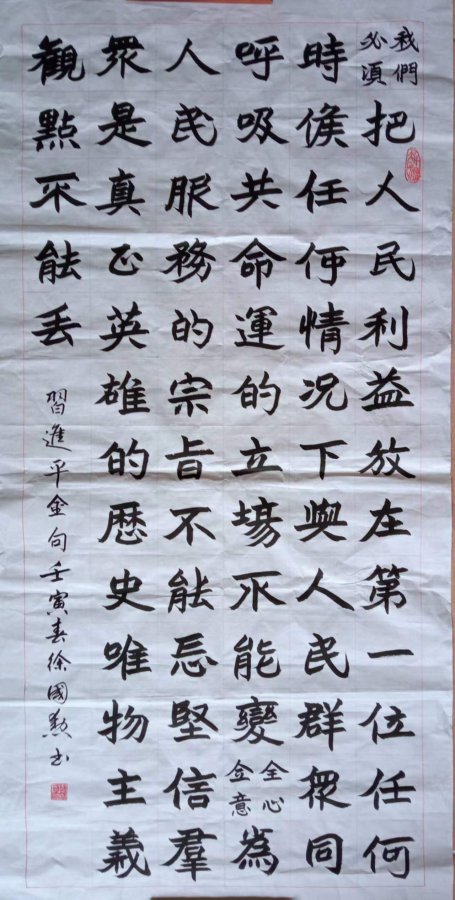 我們必須把人民利益放在第一位任何
時候任何情况下與人民群眾同
呼吸共命運的立場不能變全心全意為
人民服務的宗旨不能忘堅信羣
眾是真正英雄的歷史唯物主義
觀點不能丟
習進平金句壬寅春徐國勳书